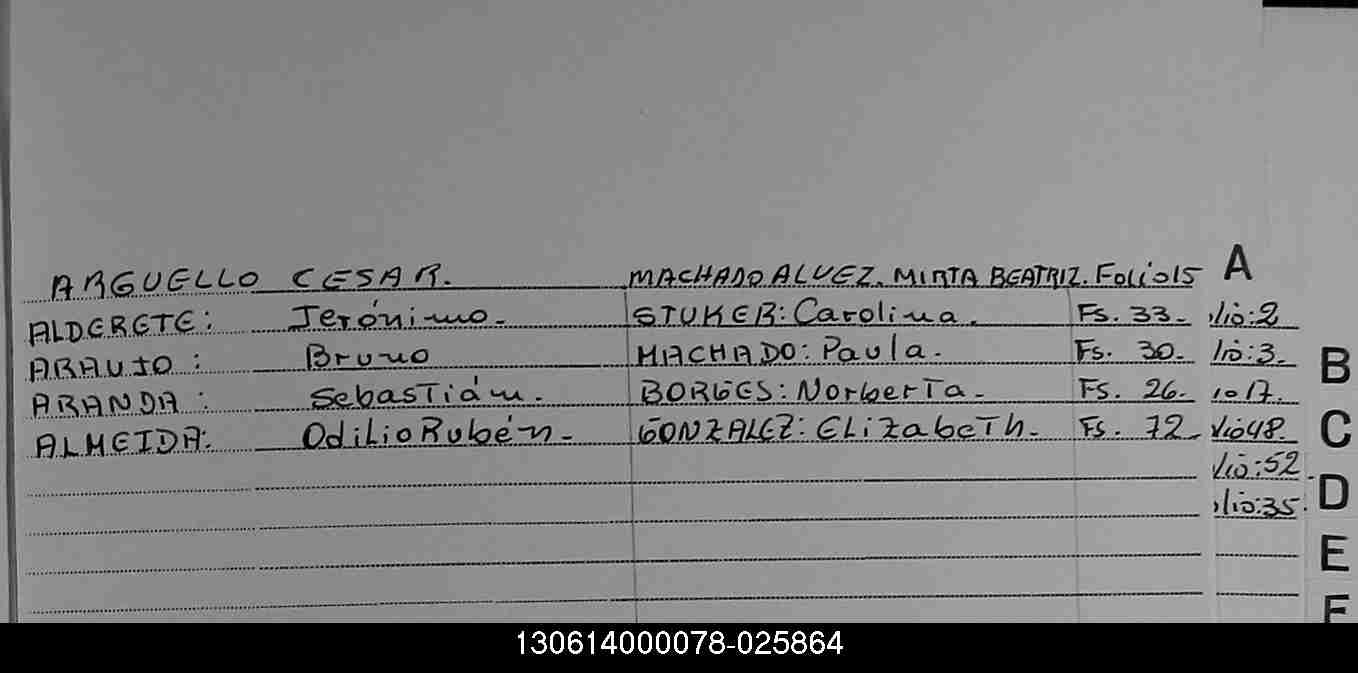 A
ARGUELLO CESAR. MACHADO ALVEZ. MIRTA BEATRIZ. Folio 15
ALDERETE: Jerónimo. STUKER: Carolina. Fs. 33. lio:2
ARAUJO: Bruno MACHADO: Paula. Fs. 30. lio:3.
B
ARANDA: Sebastián. BORGES: Norberta. Fs. 26. io 17.
ALMEIDA: Odilio Rubén. GONZALEZ: Elizabeth. Fs. 72. lio 48.
C
lio:52.
D
lio:35.
E
F
130614000078-025864